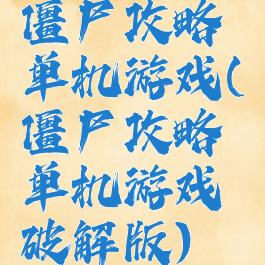 僵尸攻略
单机游戏(
僵尸攻略
单机游戏
破解版)